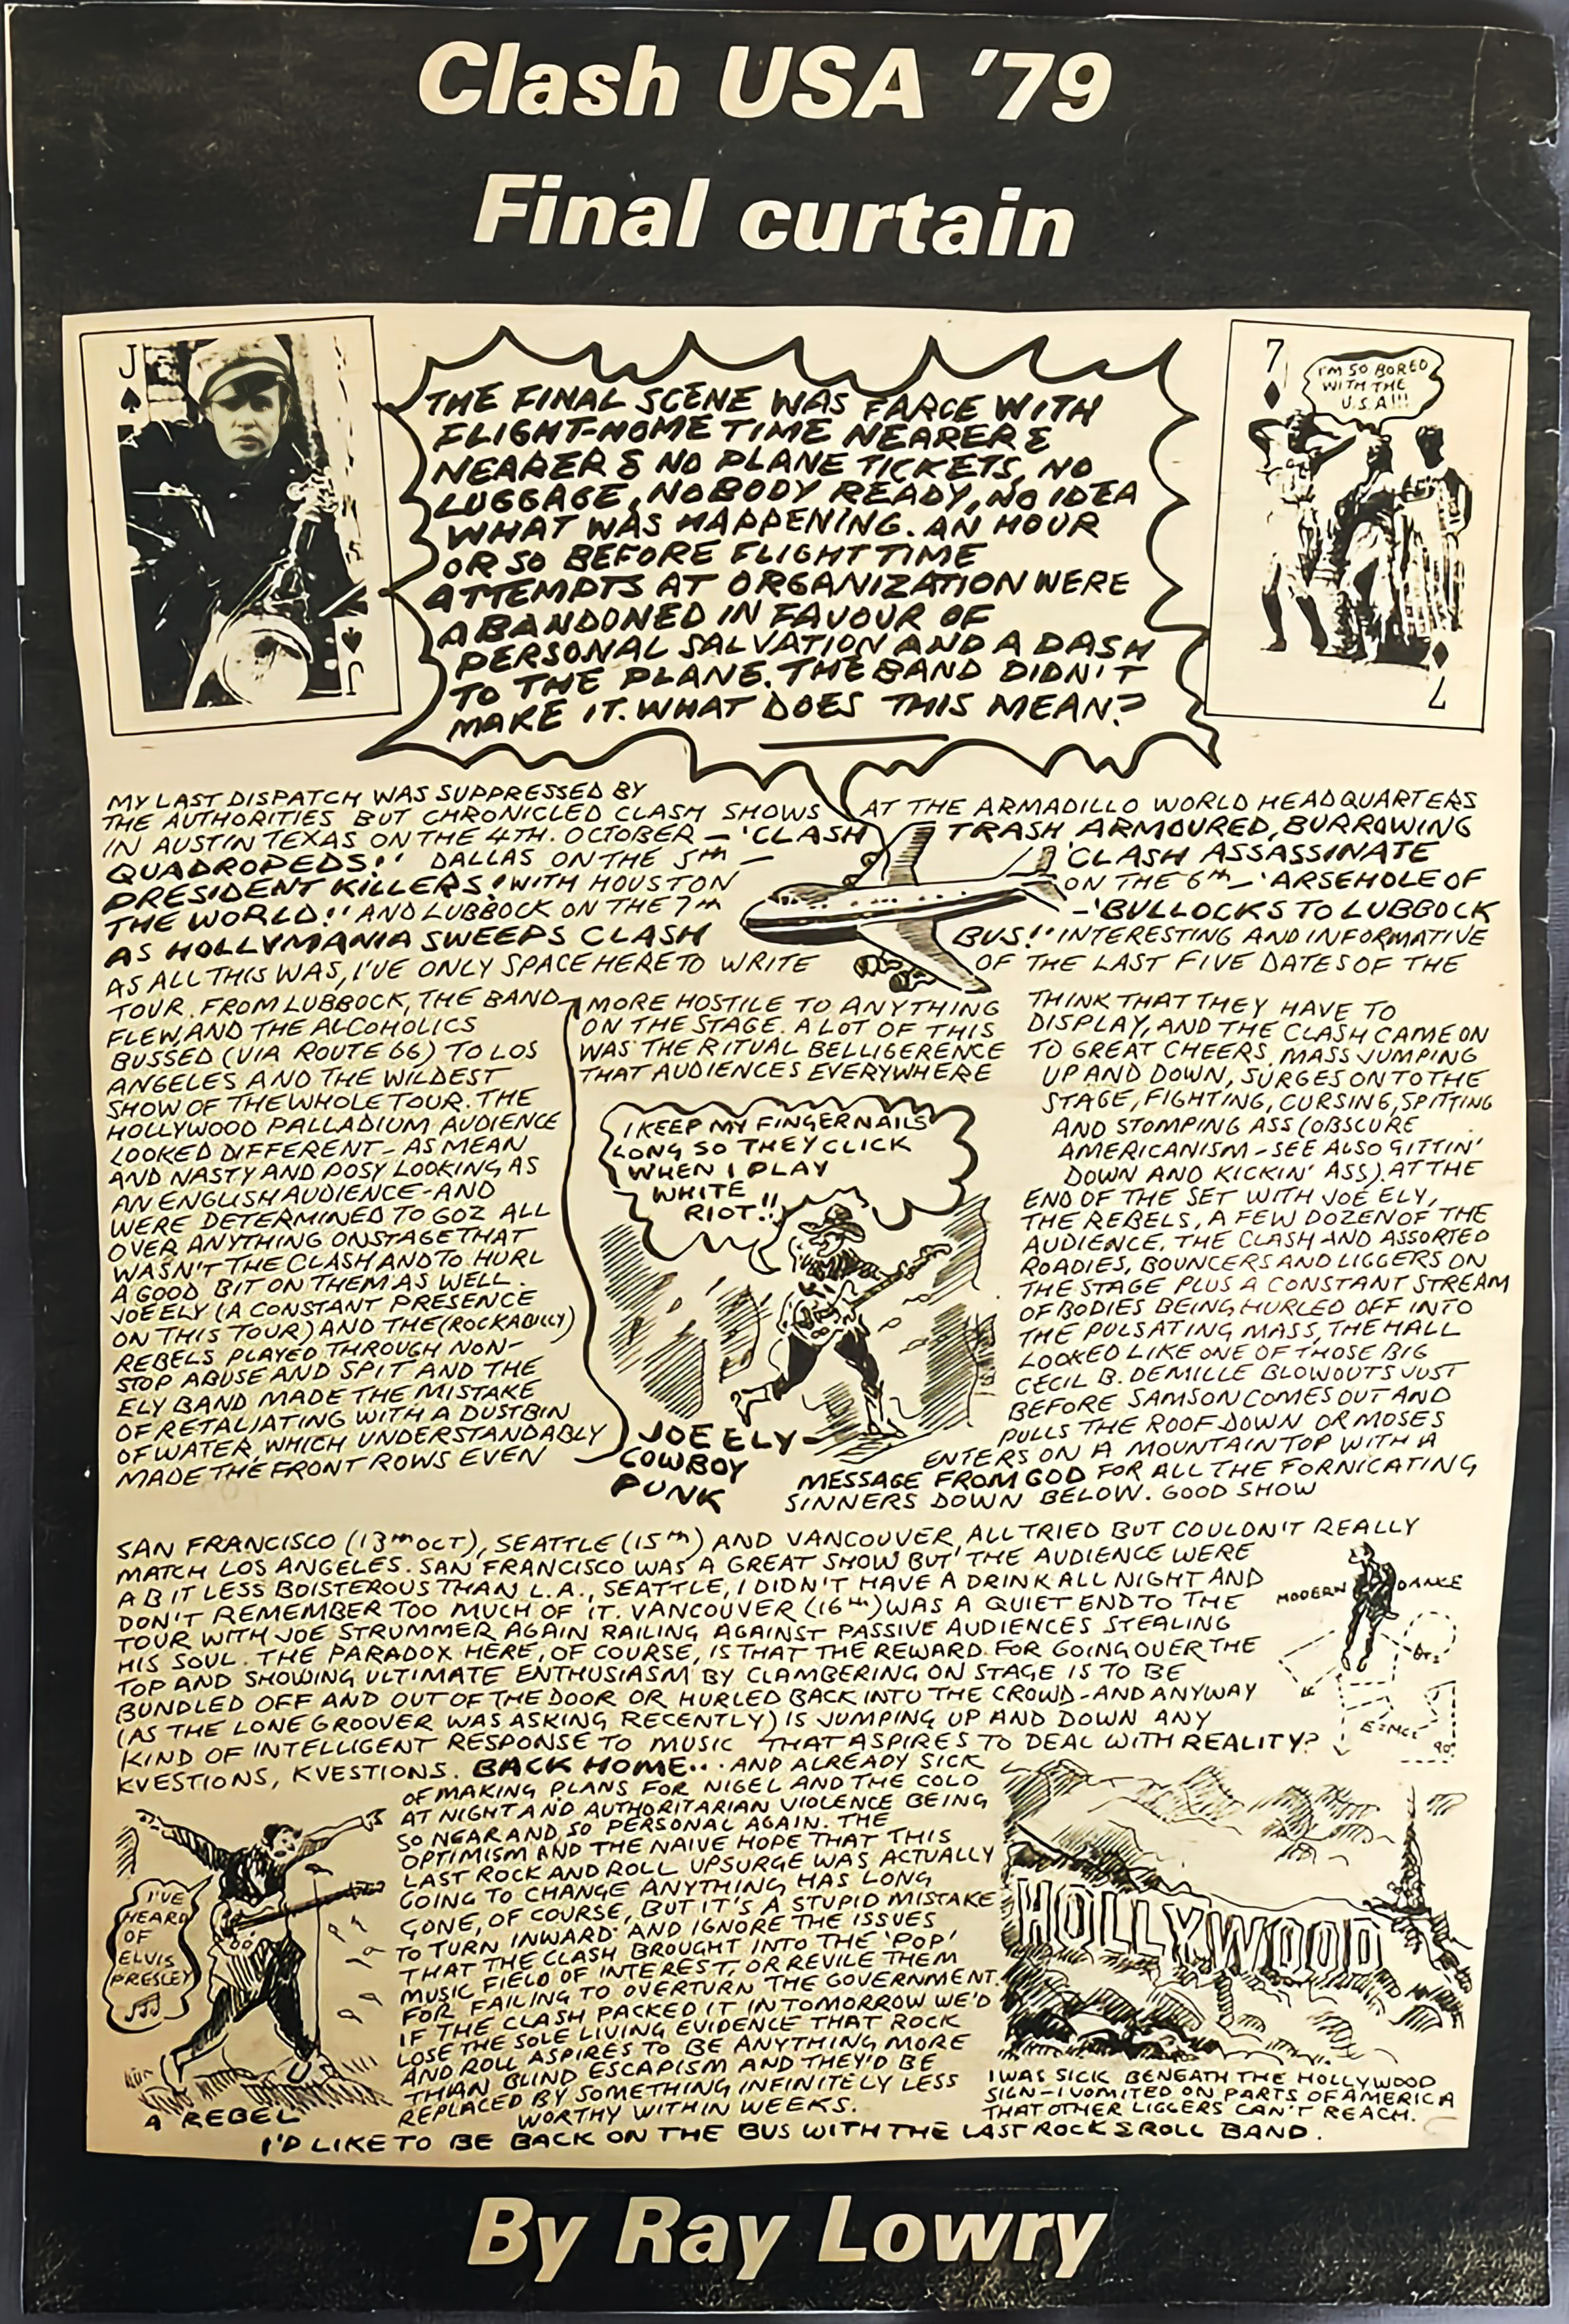 Clash USA '79
Final curtain
J
THE FINAL SCENE WAS FARCE WITH
FLIGHT-HOME TIME NEARER &
NEARER & NO PLANE TICKETS, NO
LUGGAGE, NOBODY READY, NO IDEA
WHAT WAS HAPPENING. AN HOUR
OR SO BEFORE FLIGHT TIME
ATTEMPTS AT ORGANIZATION WERE
ABANDONED IN FAVOUR OF
PERSONAL SALVATION AND A DASH
TO THE PLANE. THE BAND DIDN'T
MAKE IT. WHAT DOES THIS MEAN?
J
7
I'M SO BORED
WITH THE
U.S.A!!!
7
MY LAST DISPATCH WAS SUPPRESSED BY
THE AUTHORITIES BUT CHRONICLED CLASH SHOWS AT THE ARMADILLO WORLD HEADQUARTERS
IN AUSTIN TEXAS ON THE 4TH. OCTOBER — 'CLASH TRASH ARMOURED, BURROWING
QUADROPEDS!' DALLAS ON THE 5TH — 'CLASH ASSASSINATE
PRESIDENT KILLERS!' WITH HOUSTON ON THE 6TH — 'ARSEHOLE OF
THE WORLD!' AND LUBBOCK ON THE 7TH — 'BULLOCKS TO LUBBOCK
AS HOLLYMANIA SWEEPS CLASH BUS!' INTERESTING AND INFORMATIVE
AS ALL THIS WAS, I'VE ONLY SPACE HERE TO WRITE OF THE LAST FIVE DATES OF THE
TOUR. FROM LUBBOCK, THE BAND
FLEW, AND THE ALCOHOLICS
BUSSED (VIA ROUTE 66) TO LOS
ANGELES AND THE WILDEST
SHOW OF THE WHOLE TOUR. THE
HOLLYWOOD PALLADIUM AUDIENCE
LOOKED DIFFERENT - AS MEAN
AND NASTY AND POSY LOOKING AS
AN ENGLISH AUDIENCE - AND
WERE DETERMINED TO GOZ ALL
OVER ANYTHING ONSTAGE THAT
WASN'T THE CLASH AND TO HURL
A GOOD BIT ON THEM AS WELL.
JOE ELY (A CONSTANT PRESENCE
ON THIS TOUR) AND THE (ROCKABILLY)
REBELS PLAYED THROUGH NON-
STOP ABUSE AND SPIT AND THE
ELY BAND MADE THE MISTAKE
OF RETALIATING WITH A DUSTBIN
OF WATER, WHICH UNDERSTANDABLY
MADE THE FRONT ROWS EVEN
MORE HOSTILE TO ANYTHING
ON THE STAGE. A LOT OF THIS
WAS THE RITUAL BELLIGERENCE
THAT AUDIENCES EVERYWHERE
I KEEP MY FINGERNAILS
LONG SO THEY CLICK
WHEN I PLAY
WHITE
RIOT!!
JOE ELY —
COWBOY
PUNK
THINK THAT THEY HAVE TO
DISPLAY, AND THE CLASH CAME ON
TO GREAT CHEERS, MASS JUMPING
UP AND DOWN, SURGES ON TO THE
STAGE, FIGHTING, CURSING, SPITTING
AND STOMPING ASS (OBSCURE
AMERICANISM - SEE ALSO GITTIN'
DOWN AND KICKIN' ASS). AT THE
END OF THE SET WITH JOE ELY,
THE REBELS, A FEW DOZEN OF THE
AUDIENCE, THE CLASH AND ASSORTED
ROADIES, BOUNCERS AND LIGGERS ON
THE STAGE PLUS A CONSTANT STREAM
OF BODIES BEING HURLED OFF INTO
THE PULSATING MASS, THE HALL
LOOKED LIKE ONE OF THOSE BIG
CECIL B. DEMILLE BLOWOUTS JUST
BEFORE SAMSON COMES OUT AND
PULLS THE ROOF DOWN OR MOSES
ENTERS ON A MOUNTAIN TOP WITH A
MESSAGE FROM GOD FOR ALL THE FORNICATING
SINNERS DOWN BELOW. GOOD SHOW
SAN FRANCISCO (13TH OCT), SEATTLE (15TH) AND VANCOUVER, ALL TRIED BUT COULDN'T REALLY
MATCH LOS ANGELES. SAN FRANCISCO WAS A GREAT SHOW BUT THE AUDIENCE WERE
A BIT LESS BOISTEROUS THAN L.A., SEATTLE, I DIDN'T HAVE A DRINK ALL NIGHT AND
DON'T REMEMBER TOO MUCH OF IT. VANCOUVER (16TH) WAS A QUIET END TO THE
TOUR WITH JOE STRUMMER AGAIN RAILING AGAINST PASSIVE AUDIENCES STEALING
HIS SOUL. THE PARADOX HERE, OF COURSE, IS THAT THE REWARD FOR GOING OVER THE
TOP AND SHOWING ULTIMATE ENTHUSIASM BY CLAMBERING ON STAGE IS TO BE
BUNDLED OFF AND OUT OF THE DOOR OR HURLED BACK INTO THE CROWD - AND ANYWAY
(AS THE LONE GROOVER WAS ASKING RECENTLY) IS JUMPING UP AND DOWN ANY
KIND OF INTELLIGENT RESPONSE TO MUSIC THAT ASPIRES TO DEAL WITH REALITY?
KVESTIONS, KVESTIONS. BACK HOME... AND ALREADY SICK
MODERN DANCE
E=MC²
90°
OF MAKING PLANS FOR NIGEL AND THE COLD
AT NIGHT AND AUTHORITARIAN VIOLENCE BEING
SO NEAR AND SO PERSONAL AGAIN. THE
OPTIMISM AND THE NAIVE HOPE THAT THIS
LAST ROCK AND ROLL UPSURGE WAS ACTUALLY
GOING TO CHANGE ANYTHING HAS LONG
GONE, OF COURSE, BUT IT'S A STUPID MISTAKE
TO TURN INWARD AND IGNORE THE ISSUES
THAT THE CLASH BROUGHT INTO THE 'POP'
MUSIC FIELD OF INTEREST, OR REVILE THEM
FOR FAILING TO OVERTURN THE GOVERNMENT.
IF THE CLASH PACKED IT IN TOMORROW WE'D
LOSE THE SOLE LIVING EVIDENCE THAT ROCK
AND ROLL ASPIRES TO BE ANYTHING MORE
THAN BLIND ESCAPISM AND THEY'D BE
REPLACED BY SOMETHING INFINITELY LESS
WORTHY WITHIN WEEKS.
I'VE
HEARD
OF
ELVIS
PRESLEY
A REBEL
HOLLYWOOD
I WAS SICK BENEATH THE HOLLYWOOD
SIGN - I VOMITED ON PARTS OF AMERICA
THAT OTHER LIGGERS CAN'T REACH.
I'D LIKE TO BE BACK ON THE BUS WITH THE LAST ROCK & ROLL BAND.
By Ray Lowry